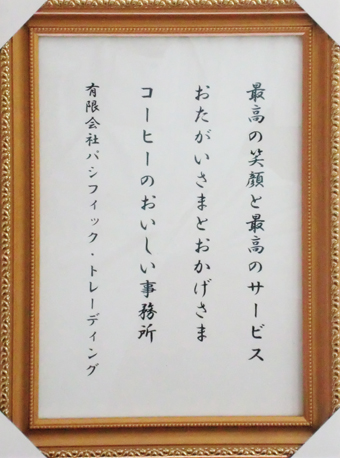 最高の笑顔と最高のサービス
おたがいさまとおかげさま
コーヒーのおいしい事務所
有限会社パシフィック・トレーディング